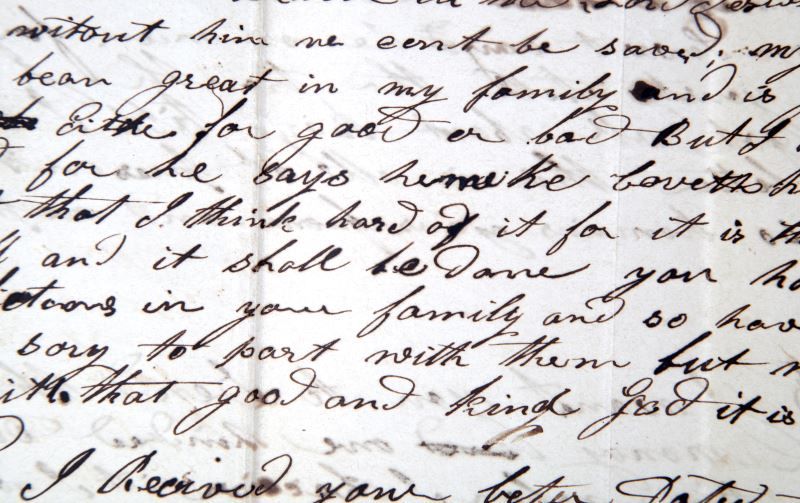 without him we cent be saved; my
bean great in my family and is
for good or bad But I
for he says he loveth h
that I think hard of it for it is th
and it shall be done you ha
in your family and so hav
sory to part with them but
that good and kind God it is
I Received your